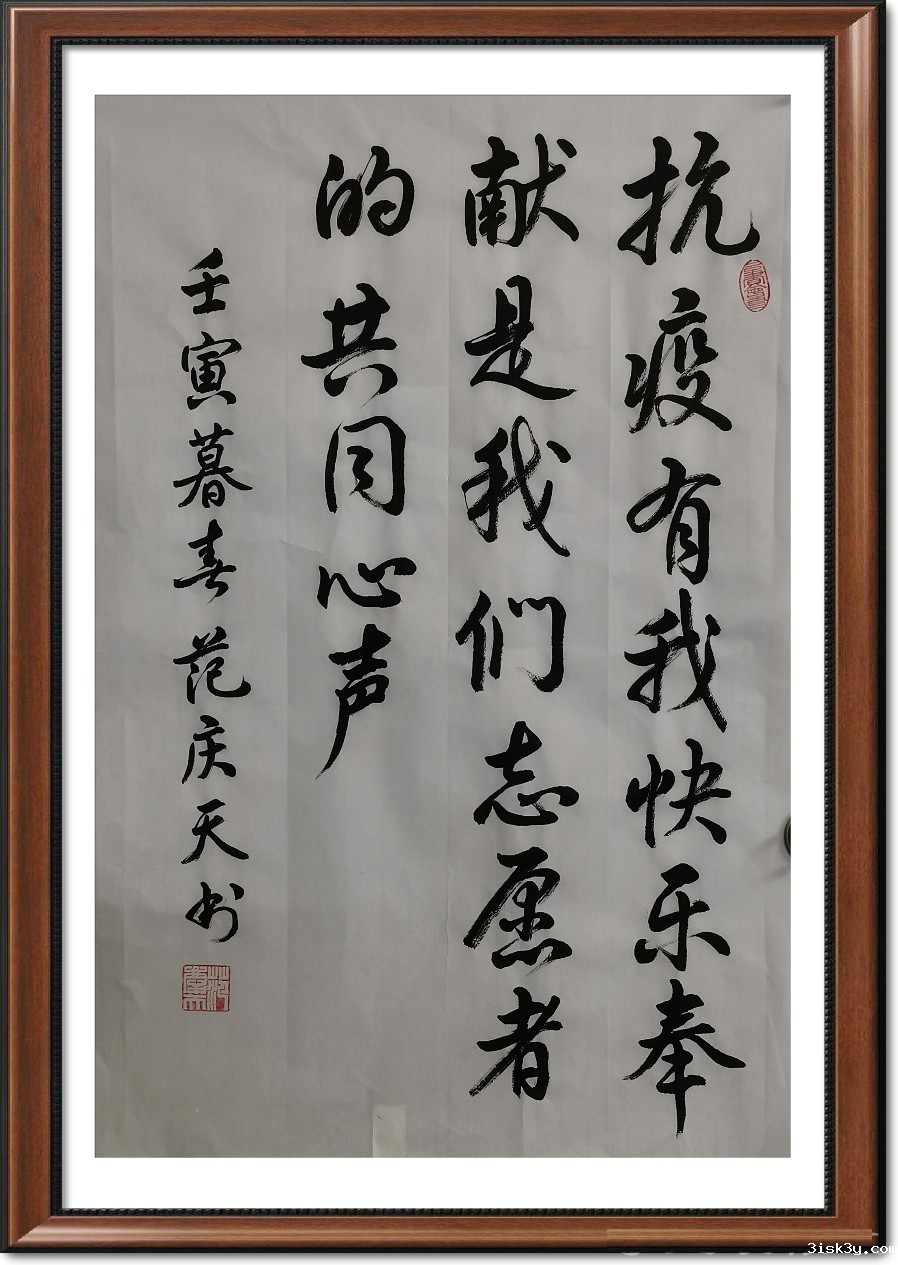 抗疫有我快乐奉
献是我们志愿者
的共同心声
壬寅暮春范庆天书
3isk3y.com